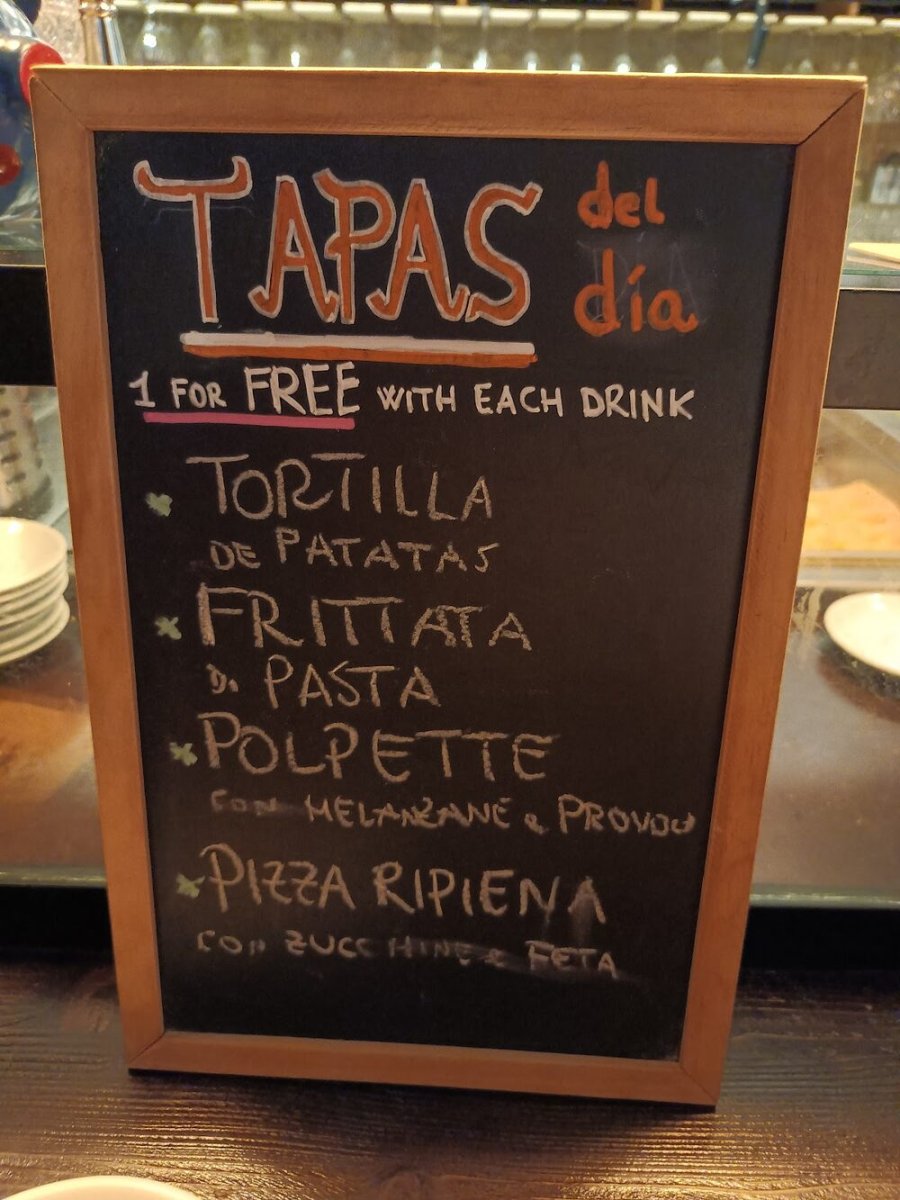 TAPAS del día
1 FOR FREE WITH EACH DRINK
TORTILLA
DE PATATAS
FRITTATA
Di PASTA
POLPETTE
CON MELANZANE e
PIZZA RIPIENA
CON ZUCCHINE e FETA